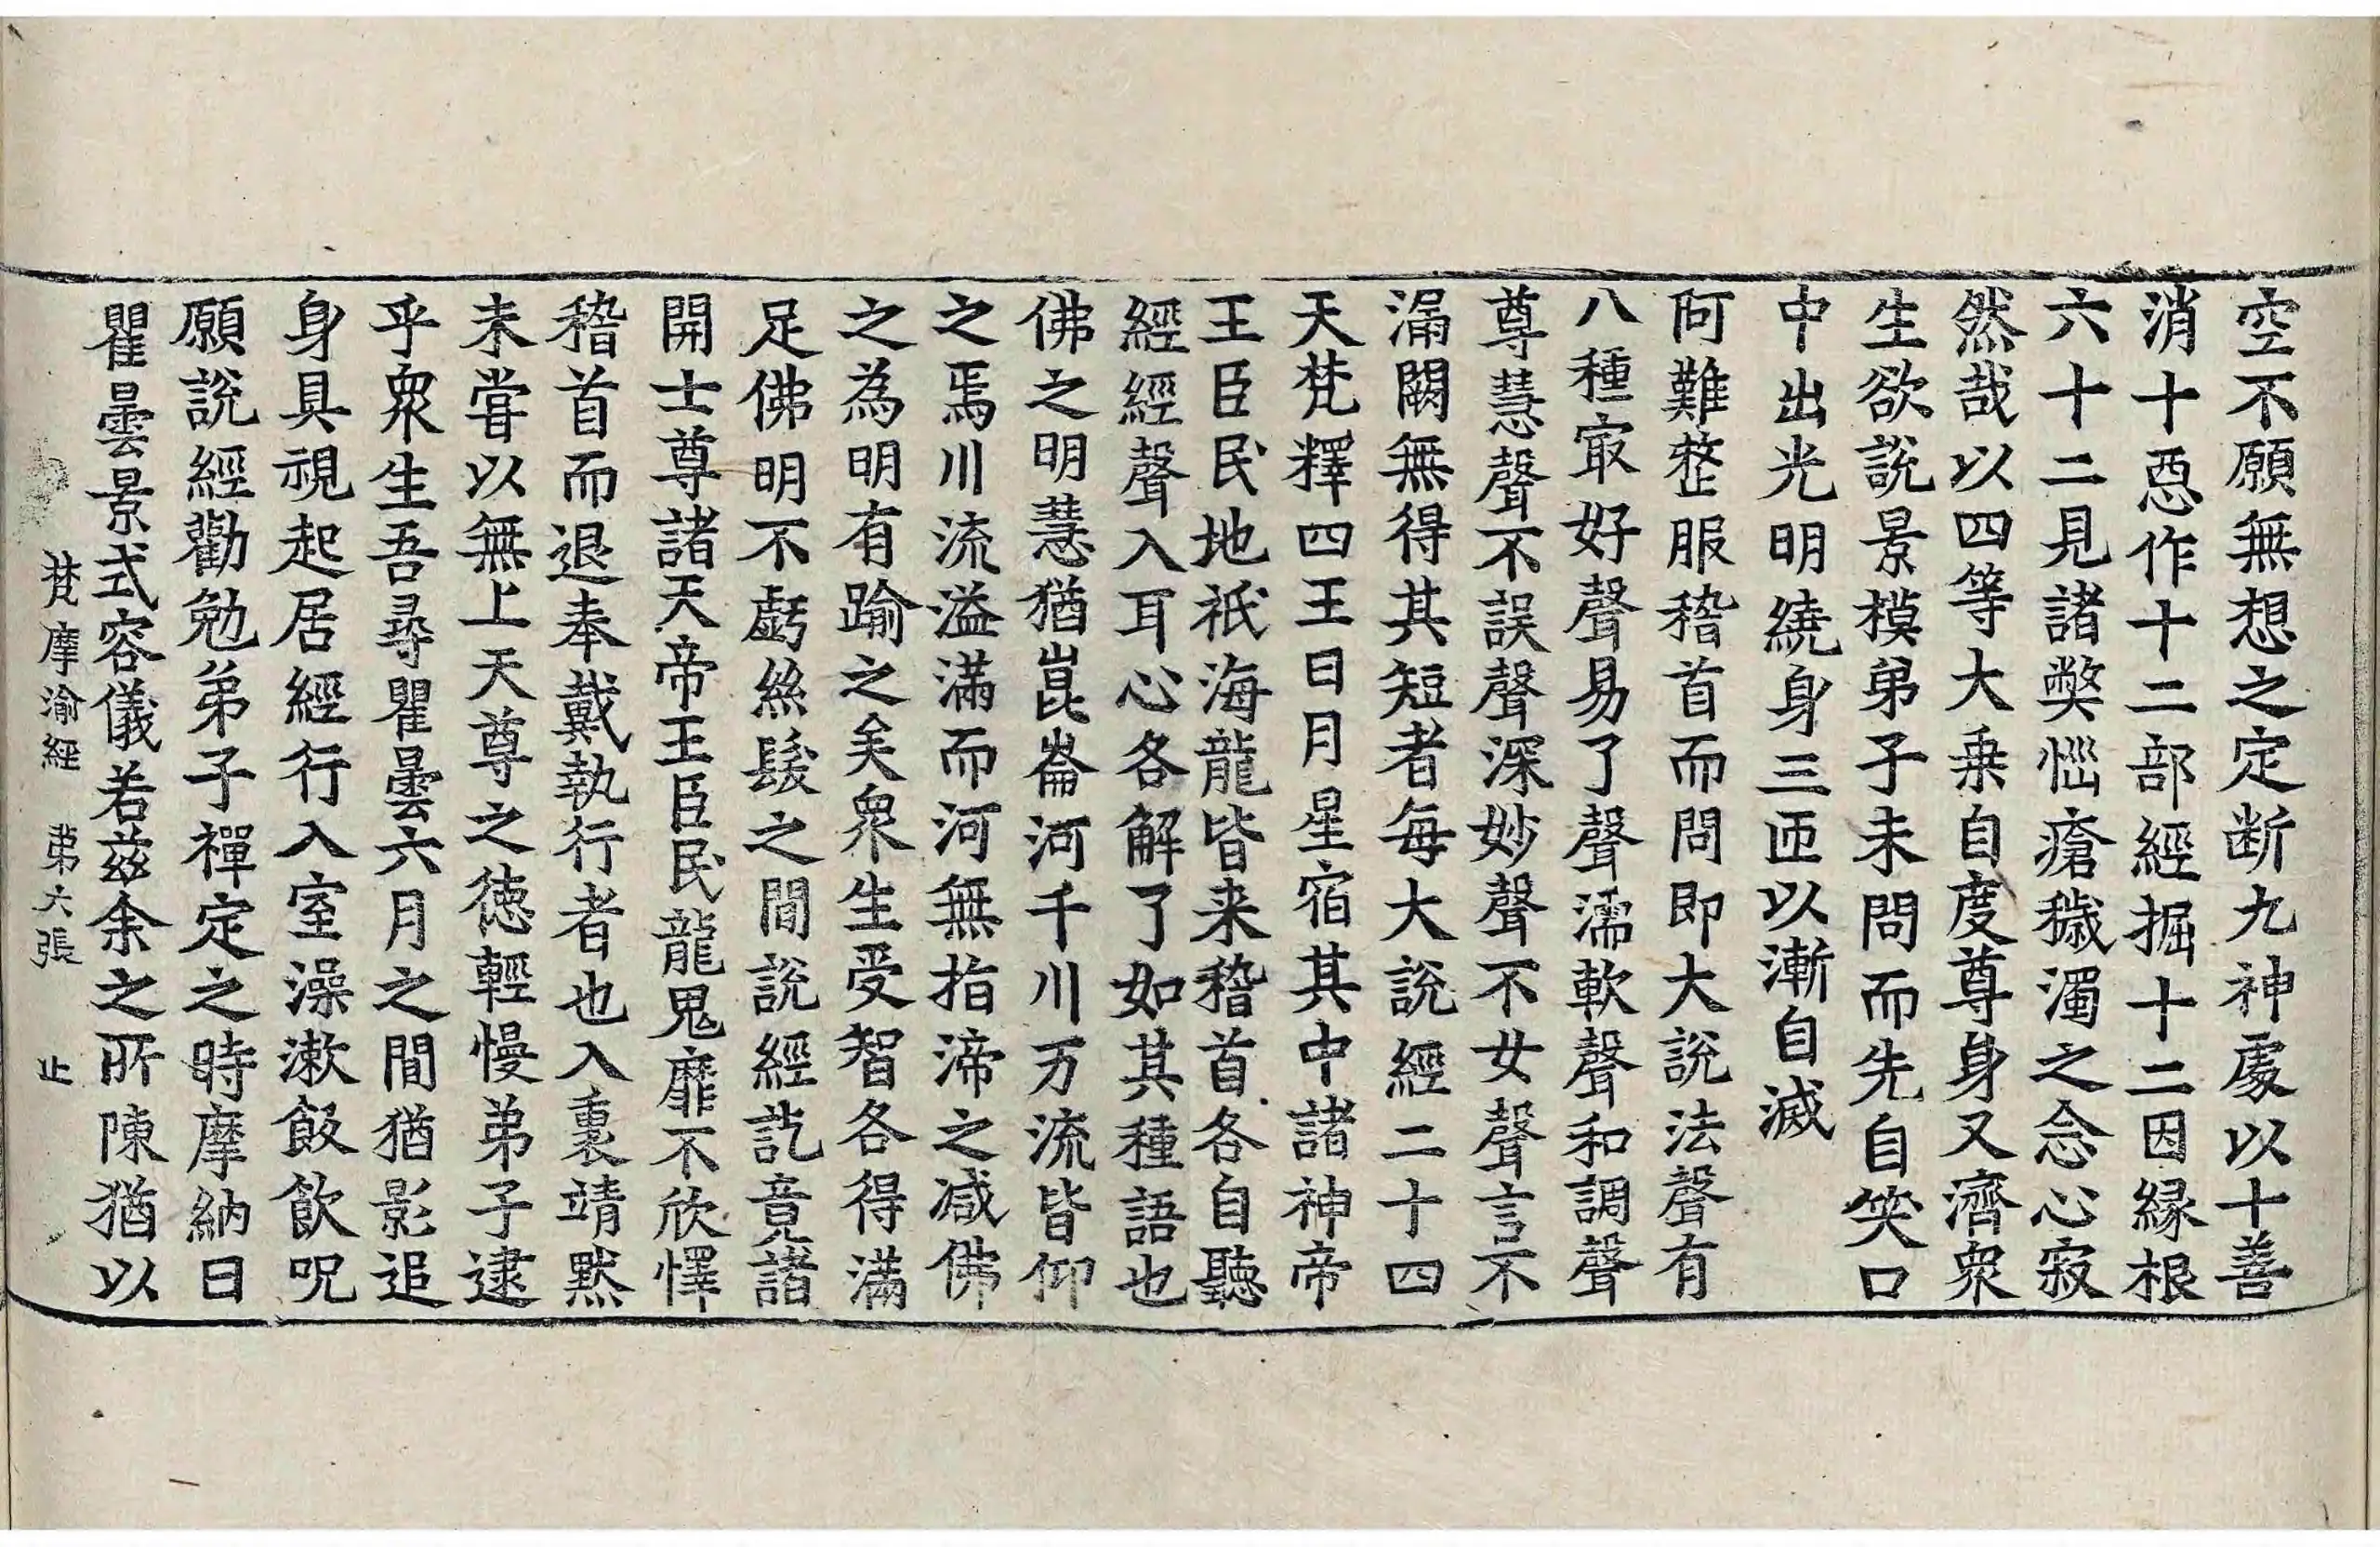 空不願無想之定断九神處以十善
消十惡作十二部經掘十二因縁根
六十二見諸獘惱瘡穢濁之念心寂
然哉以四等大乗自度尊身又濟衆
生欲説景模弟子未問而先自笑口
中出光明繞身三匝以漸自滅
阿難整服稽首而問即大説法聲有
八種㝡好聲易了聲濡軟聲和調聲
尊慧聲不誤聲深妙聲不女聲言不
漏闕無得其短者每大說經二十四
天梵釋四王日月星宿其中諸神帝
王臣民地祇海龍皆来稽首各自聽
經經聲入耳心各解了如其種語也
佛之明慧猶崑崙河千川万流皆仰
之焉川流溢滿而河無指渧之减佛
之為明有踰之矣衆生受智各得滿
足佛明不虧絲髮之間說經訖竟諸
開士尊諸天帝王臣民龍鬼靡不欣懌
稽首而退奉戴執行者也入裏靖黙
未嘗以無上天尊之徳輕慢弟子逮
乎衆生吾尋瞿曇六月之間猶影追
身具視起居經行入室澡漱飯飲呪
願說經勸勉弟子禪定之時摩納曰
瞿曇景式容儀若兹余之所陳猶以
梵摩渝經 第六張 止